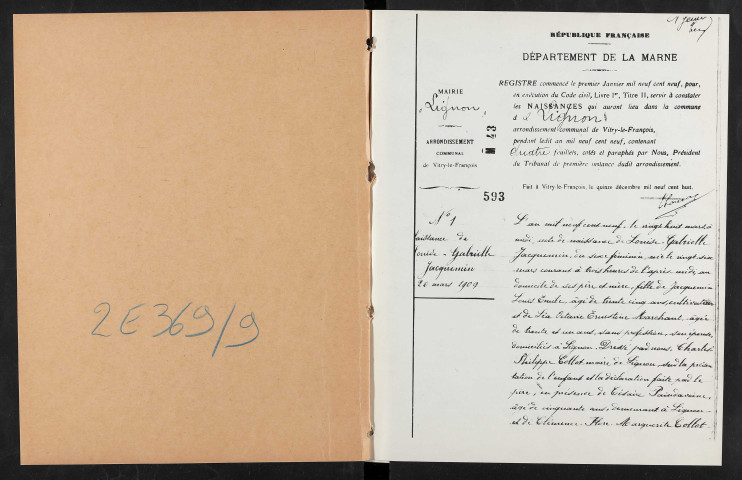 2E369/9
RÉPUBLIQUE FRANÇAISE
DÉPARTEMENT DE LA MARNE
MAIRIE
d Lignon
ARRONDISSEMENT
COMMUNAL
de Vitry-le-François
REGISTRE commencé le premier Janvier mil neuf cent neuf, pour,
en exécution du Code civil, Livre Ier, Titre II, servir à constater
les NAISSANCES qui auront lieu dans la commune
d e Lignon
arrondissement communal de Vitry-le-François,
pendant ledit an mil neuf cent neuf, contenant
Quatre feuillets, cotés et paraphés par Nous, Président
du Tribunal de première instance dudit arrondissement.
Fait à Vitry-le-François, le quinze décembre mil neuf cent huit.
M 43
593
No 1
Naissance de
Louise-Gabrielle
Jacquemin
26 mars 1909
L'an mil neuf cent neuf, le vingt huit mars à
midi, acte de naissance de Louise-Gabrielle
Jacquemin, du sexe féminin, née le vingt six
mars courant à trois heures de l'après midi au
domicile de ses père et mère, fille de Jacquemin
Louis Emile âgé de trente cinq ans, cultivateur
et de Léa Octavie Ernestine Marchand, âgée
de trente et un ans, sans profession, son épouse,
domiciliés à Lignon. Dressé par nous, Charles
Philippe Collot maire de Lignon, sur la présen
tation de l'enfant et la déclaration faite par le
père, en présence de
âgé de cinquante ans, demeurant à Lignon
et de Clémence-Flore-Marguerite Collot